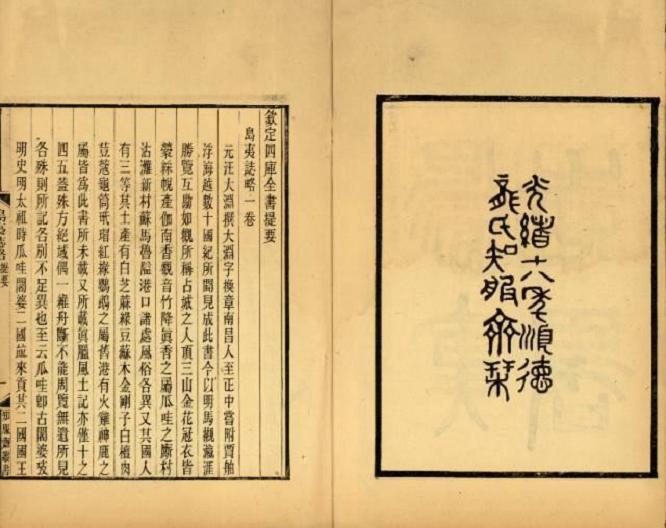 光緒十八年順德
龍氏知服齋栞
欽定四庫全書提要
島夷誌略一卷
元汪大淵撰大淵字換章南昌人至正中嘗附賈舶
浮海越數十國紀所聞見成此書今以明馬觀瀛涯
勝覽互勘如觀所稱占城之人頂三山金花冠衣皆
縈絲帨產伽南香觀音竹降眞香之屬瓜哇之廝村
沽灘新村蘇馬魯隘港口諸處風俗各異又其國人
有三等其土產有白芝蔴綠豆蘇木金剛子白檀肉
荳蔻龜筒玳瑁紅綠鸚鵡之屬舊港有火雞神鹿之
屬皆爲此書所未載又所載眞臘風土記亦僅十之
四五蓋殊方絕域偶一維舟斷不能周覽無遺所見
各殊則所記各別不足異也至云瓜哇卽古闍婆攷
明史明太祖時瓜哇闍婆二國竝來貢其二國國王
提要
一
知服齋叢書